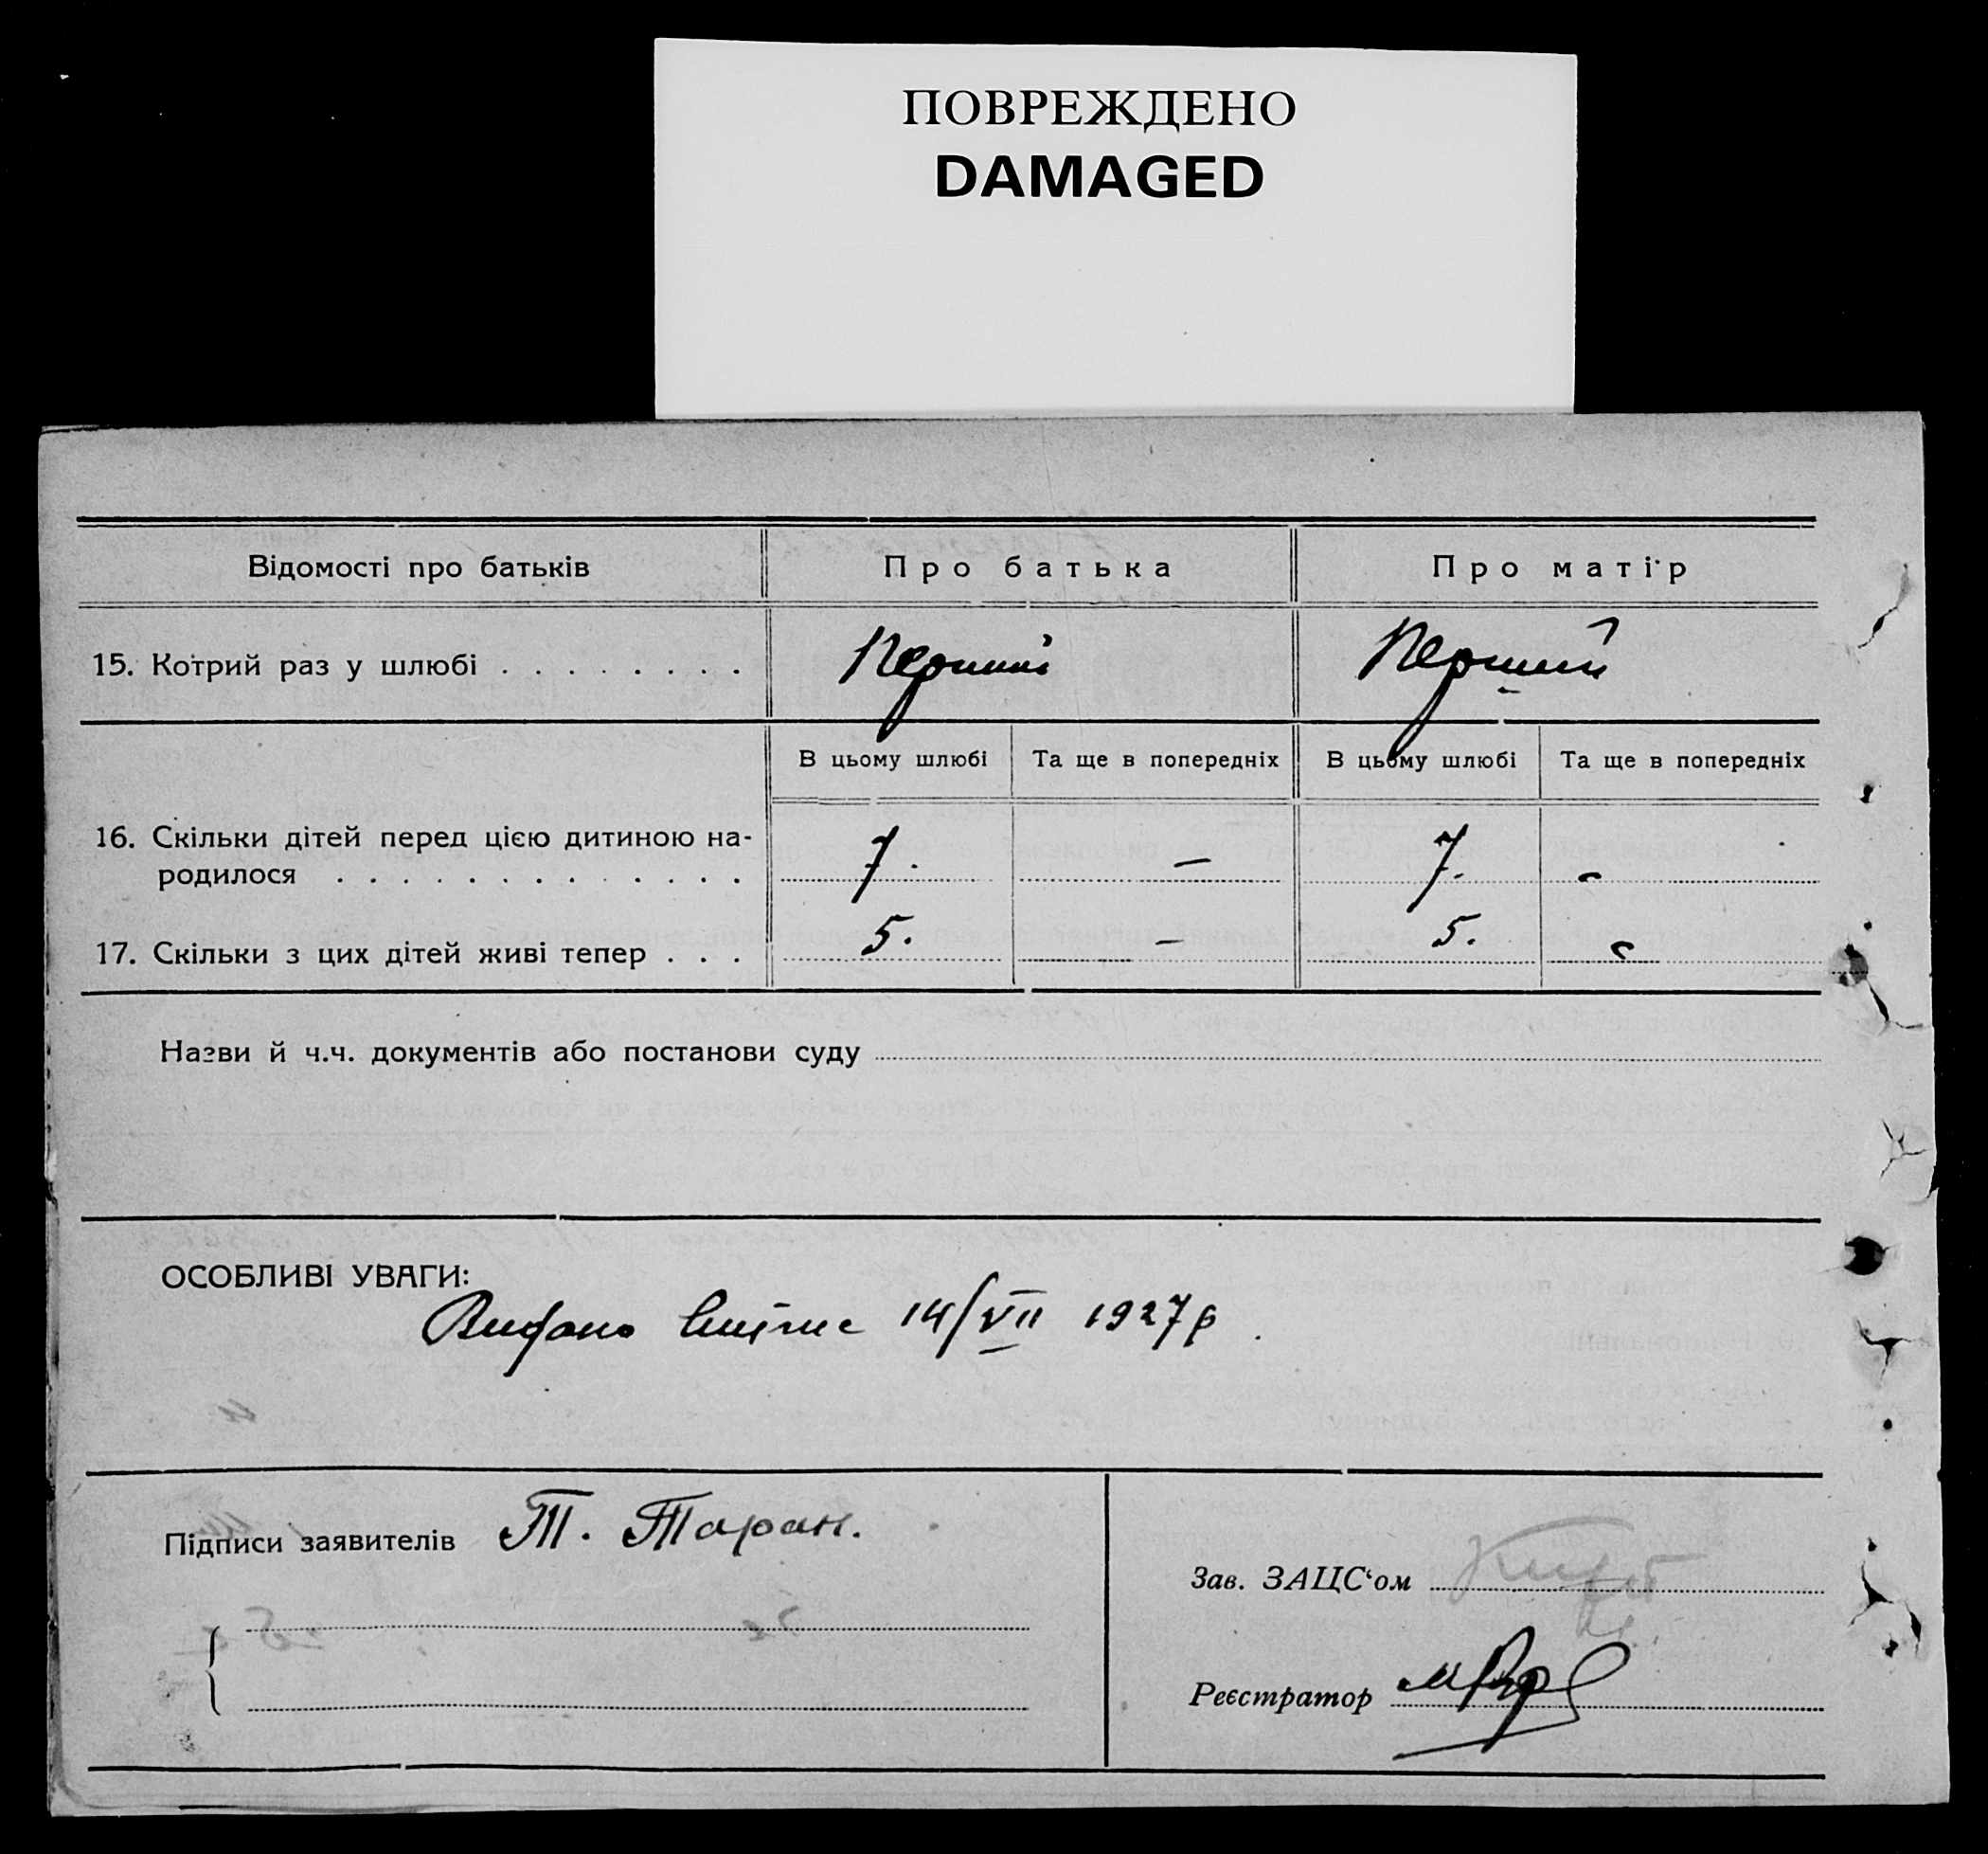 ПОВРЕЖДЕНО
DAMAGED
Відомості про батьків
Про батька
Про матір
15. Котрий раз у шлюбі . . . . . . . .
Перший
Перший
В цьому шлюбі
Та ще в попередніх
В цьому шлюбі
Та ще в попередніх
16. Скільки дітей перед цією дитиною на-
родилося . . . . . . . . . . . . .
7.
—
7.
-
17. Скільки з цих дітей живі тепер . . .
5.
-
5.
-
Назви й ч.ч. документів або постанови суду
ОСОБЛИВІ УВАГИ:
Видано 14/VII 1927р.
Підписи заявителів Т. Таран.
Зав. ЗАЦС‘ом
Реєстратор